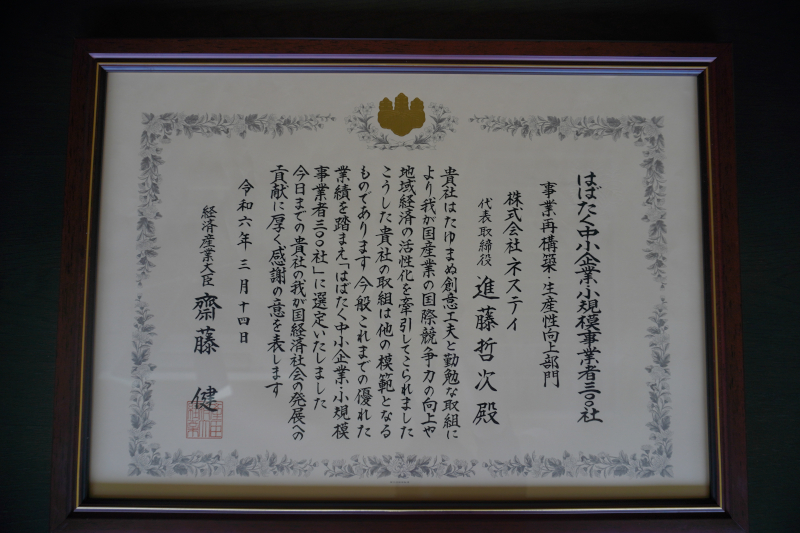 はばたく中小企業・小規模事業者三〇〇社
事業再構築・生産性向上部門
株式会社ネスティ
代表取締役 進藤哲次殿
貴社はたゆまぬ創意工夫と勤勉な取組に
より我が国産業の国際競争力の向上や
地域経済の活性化を牽引してこられました
こうした貴社の取組は他の模範となる
ものであります今般これまでの優れた
業績を踏まえ「はばたく中小企業・小規模
事業者三〇〇社」に選定いたしました
今日までの貴社の我が国経済社会の発展への
貢献に厚く感謝の意を表します
令和六年三月十四日
経済産業大臣 齋藤 健